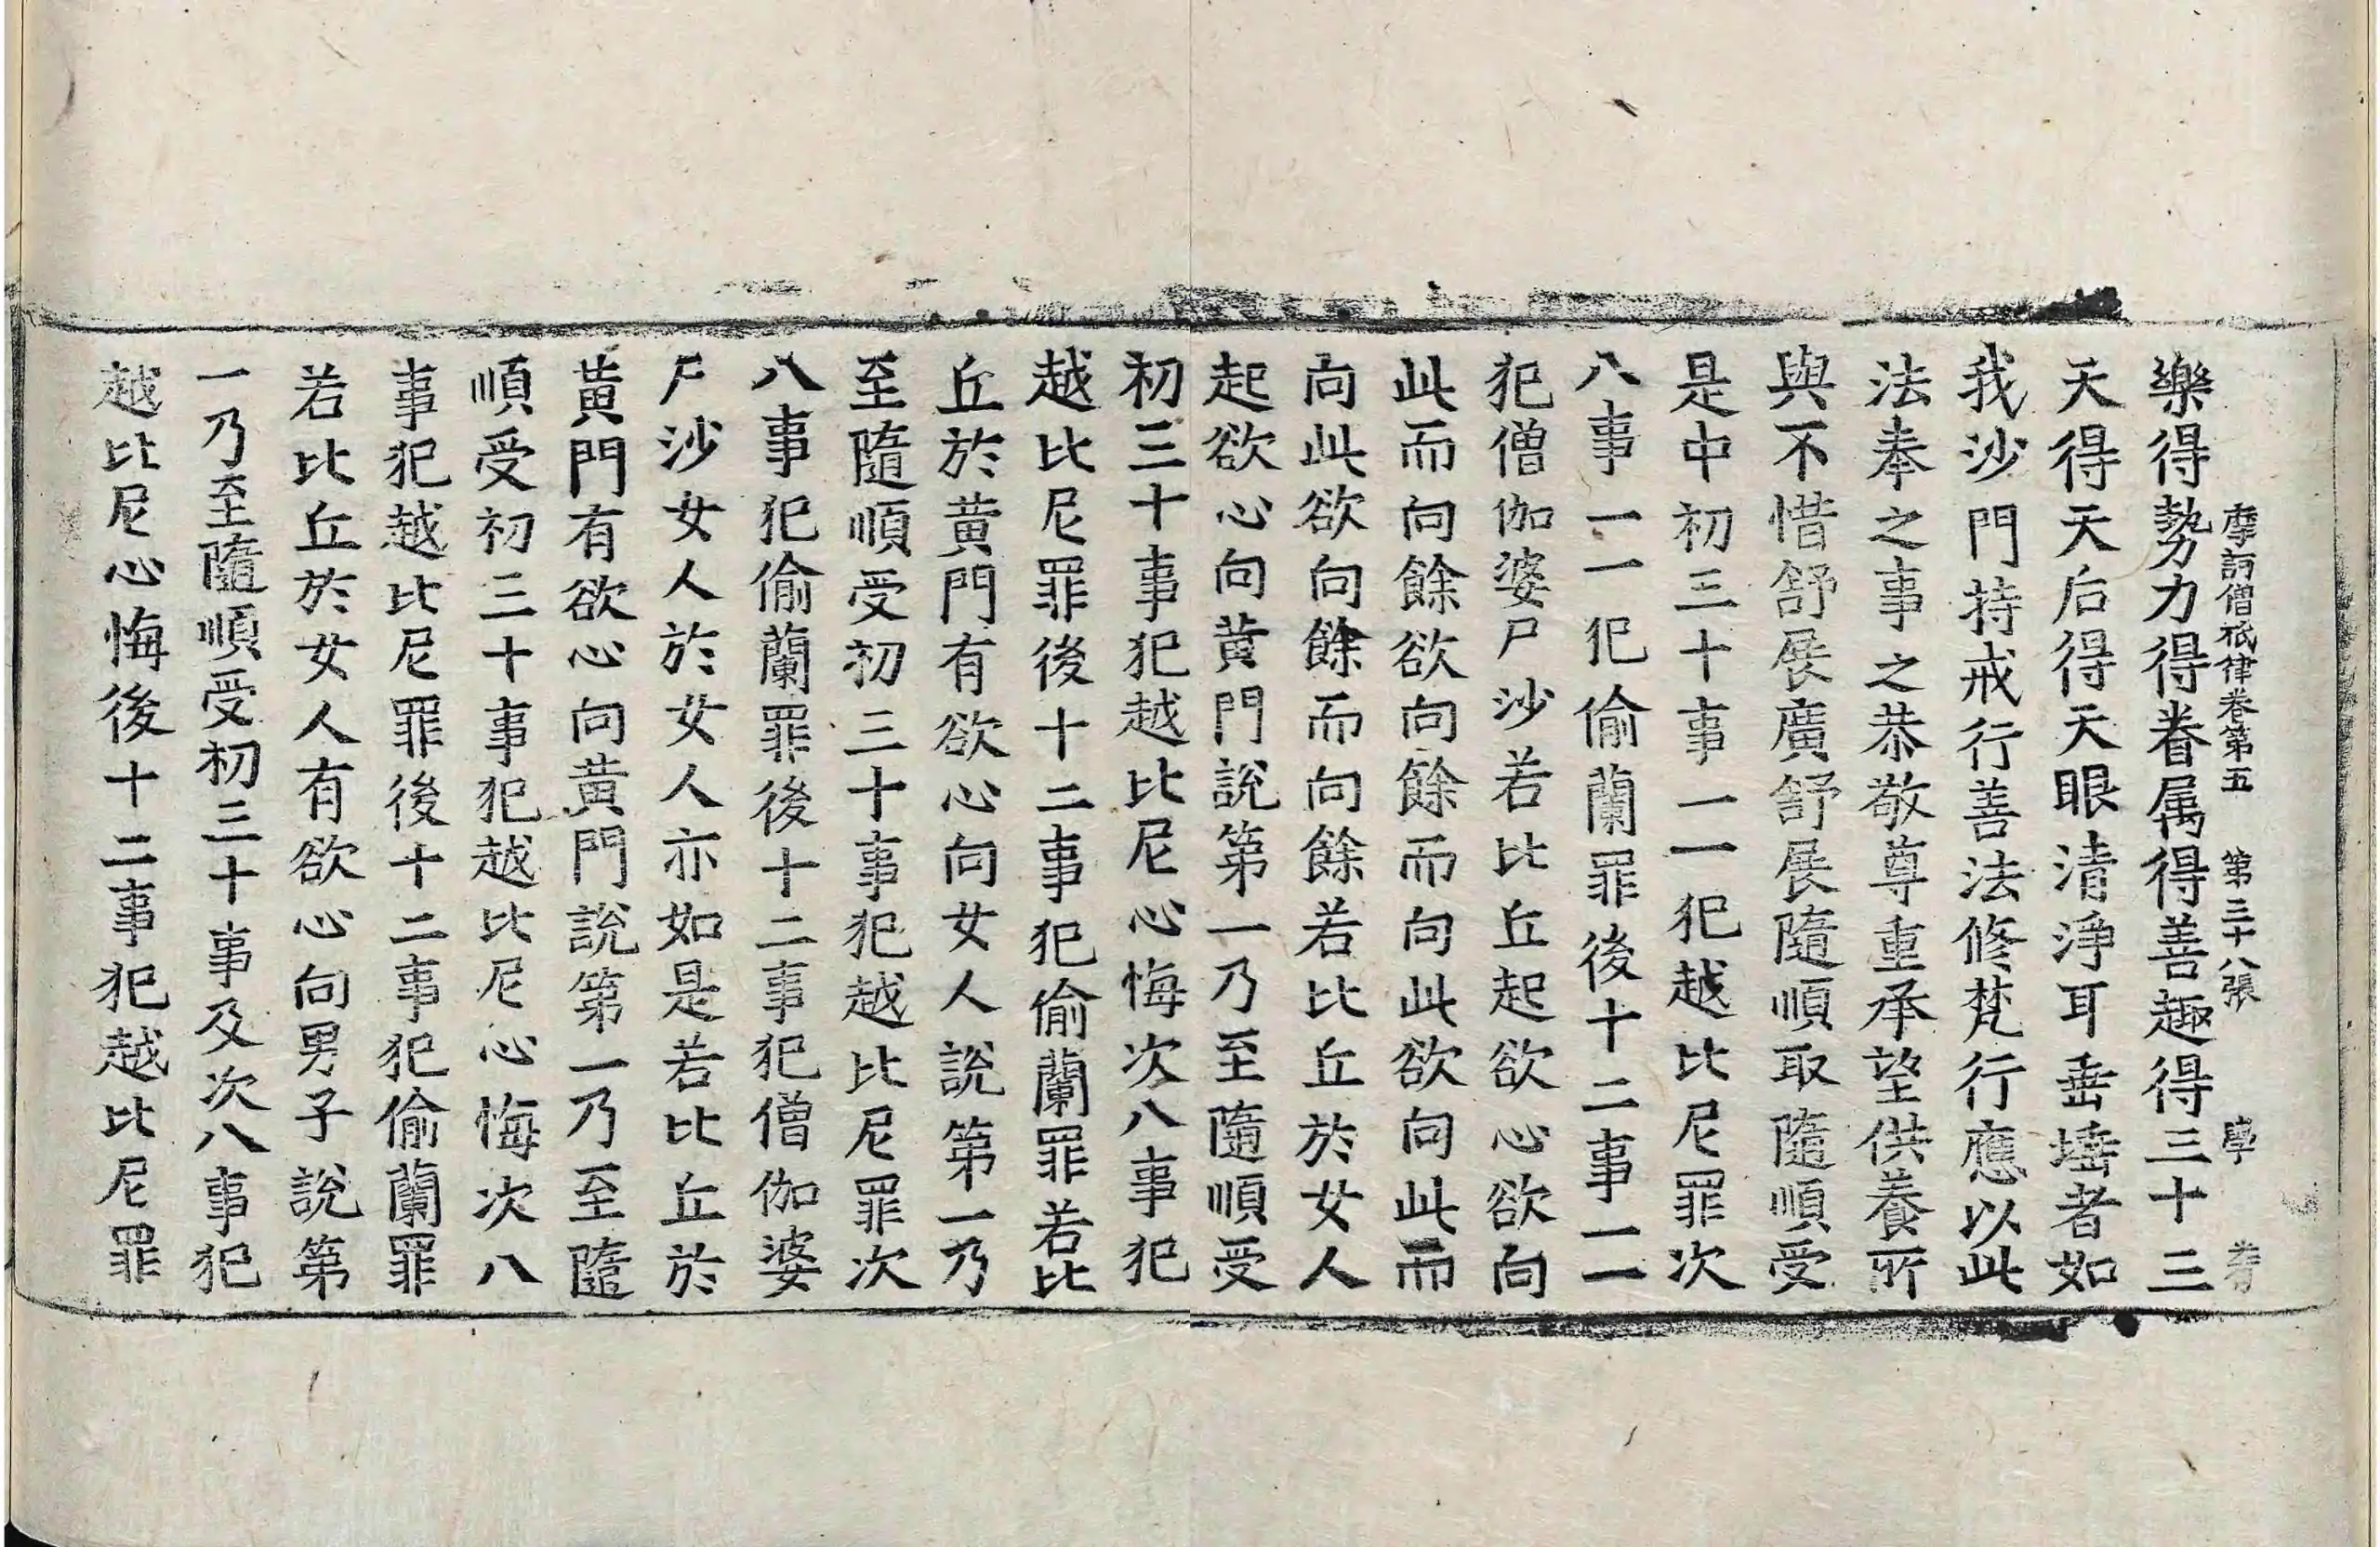 摩訶僧祇律卷第五　第三十八張
樂得勢力得眷属得善趣得三十三
天得天后得天眼清淨耳垂埵者如
我沙門持戒行善法修梵行應以此
法奉之事之恭敬尊重承望供養所
與不惜舒展廣舒展隨順取隨順受
是中初三十事一一犯越比尼罪次
八事一一犯偷蘭罪後十二事一一
犯僧伽婆尸沙若比丘起欲心欲向
此而向餘欲向餘而向此欲向此而
向此欲向餘而向餘若比丘於女人
起欲心向黄門說第一乃至隨順受
初三十事犯越比尼心悔次八事犯
越比尼罪後十二事犯偷蘭罪若比
丘於黄門有欲心向女人說第一乃
至隨順受初三十事犯越比尼罪次
八事犯偷蘭罪後十二事犯僧伽婆
尸沙女人於女人亦如是若比丘於
黄門有欲心向黄門說第一乃至隨
順受初三十事犯越比尼心悔次八
事犯越比尼罪後十二事犯偷蘭罪
若比丘於女人有欲心向男子說第
一乃至隨順受初三十事及次八事犯
越比尼心悔後十二事犯越比尼罪